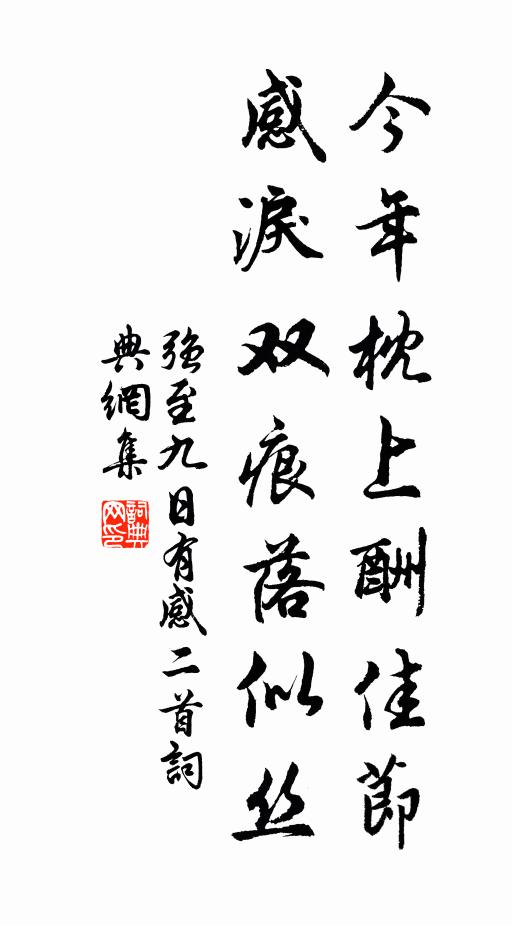 今年枕上酬佳節
感淚双痕落似丝
強至九日有感二首詞
典網集
詞典网印